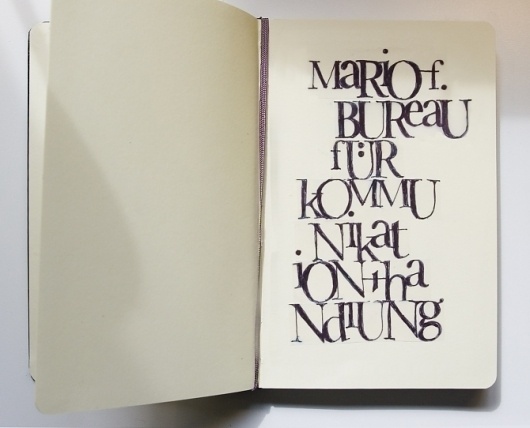 MaRiO f.
BUReaU
fÜR
kOMMU
Nikat
iON+ha
NdlUNg